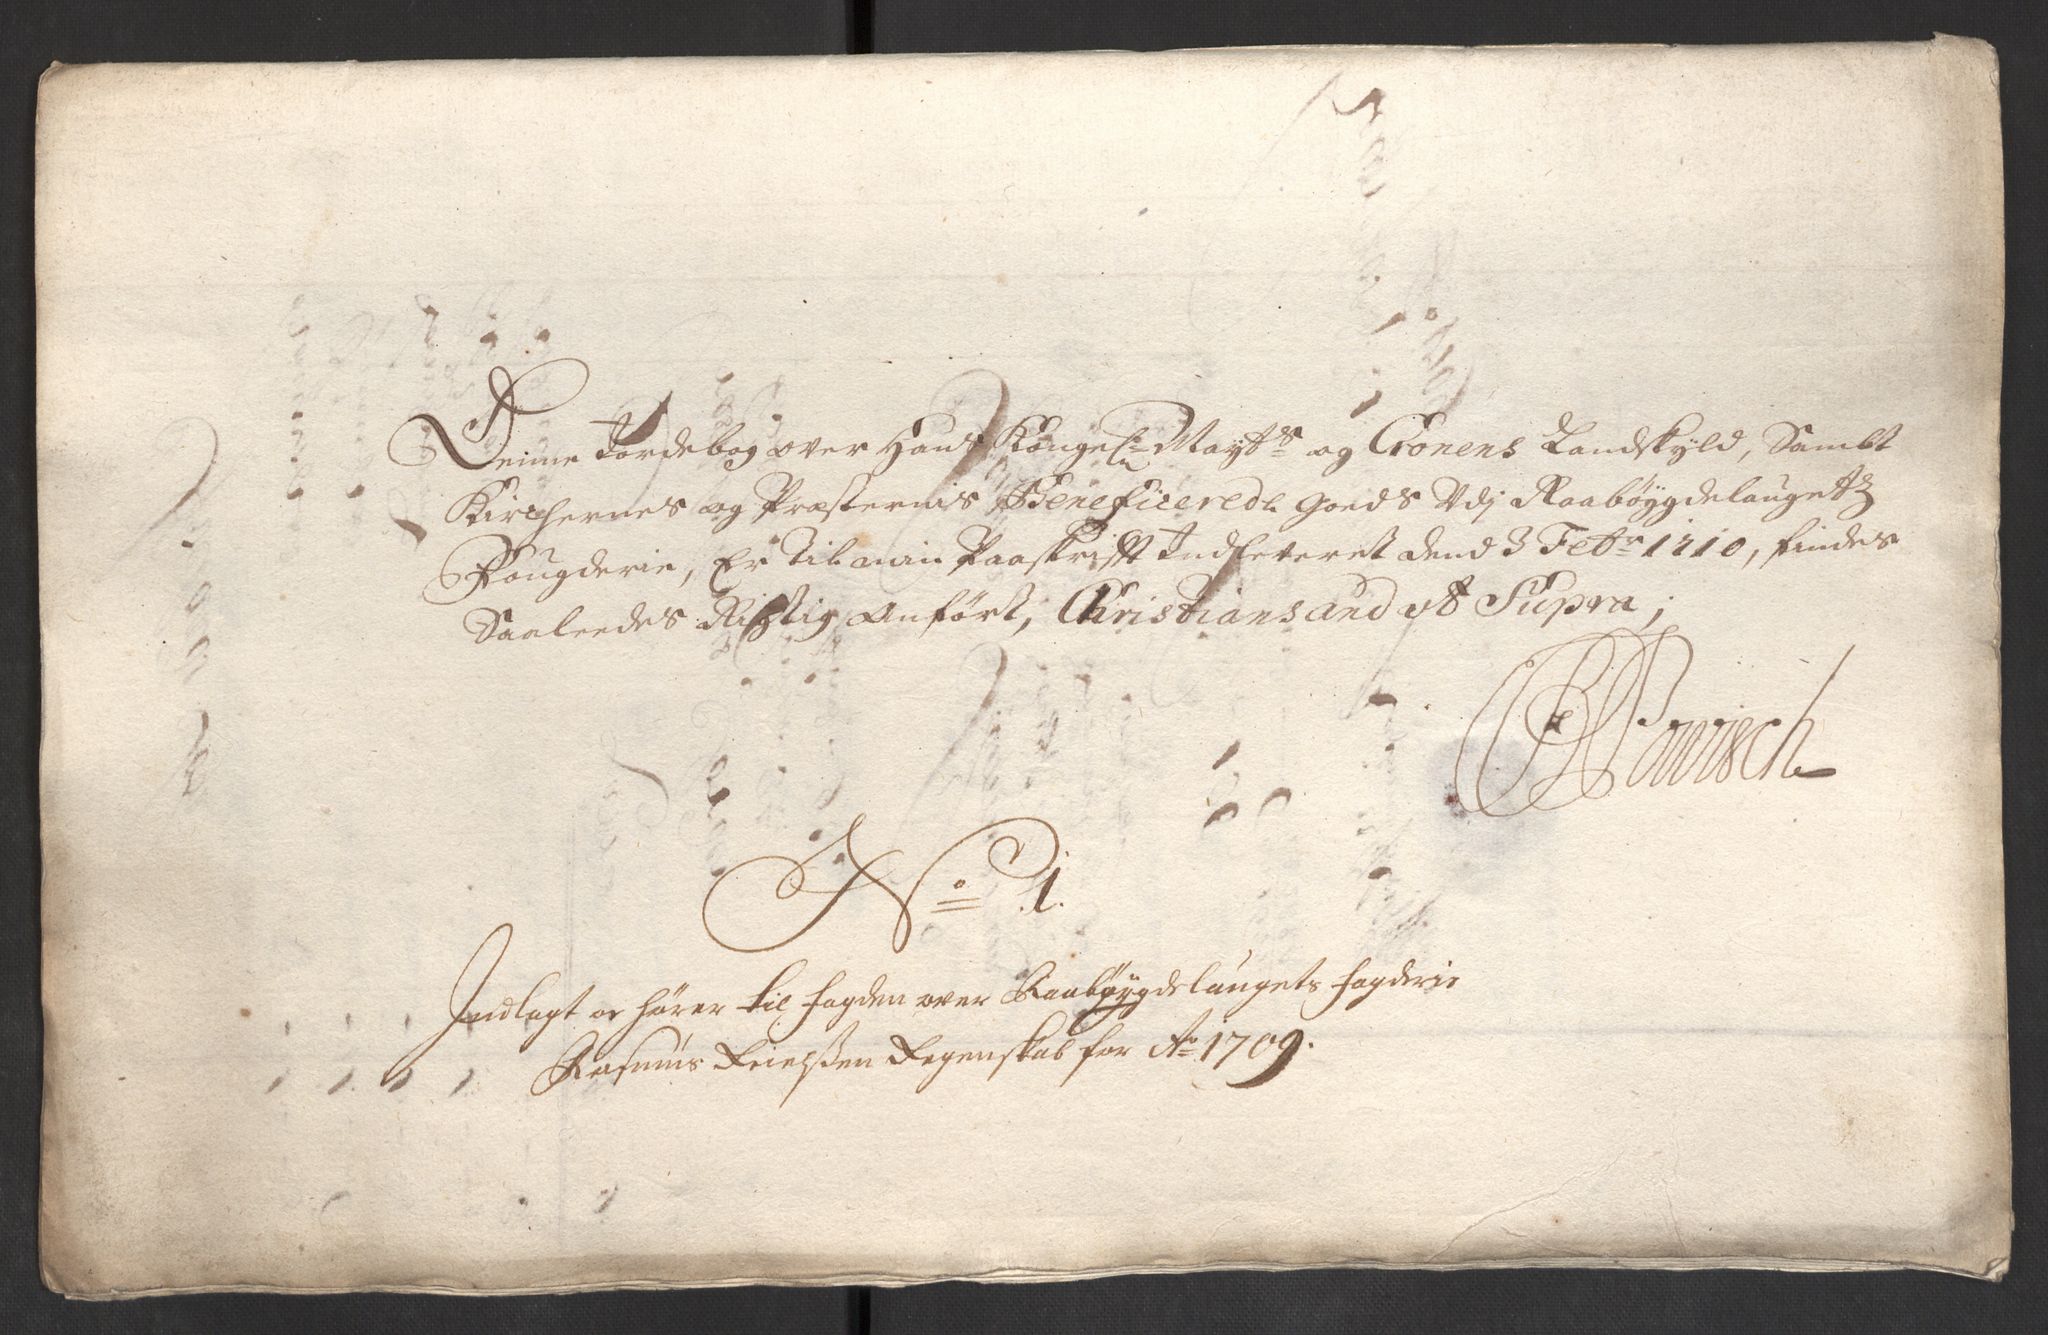 Denne Jordebog over Hans Kongel: Mayts og Cronens Landskyld, Sambt
Kirchernes og Præsternis Beneficerede Goeds Udj Raabøygdelaugetz
Fougderie, Er Til min Paaskrifft Indleveret dend 3 Febr: 1710, findes
Saaleedes Rigtig Anført, Christiansand ut Supra;
No 1.
Indlagt oc hører til fogden over Raabøygdelaugets fogderie
Rasmus Regenskab for Ao 1709.